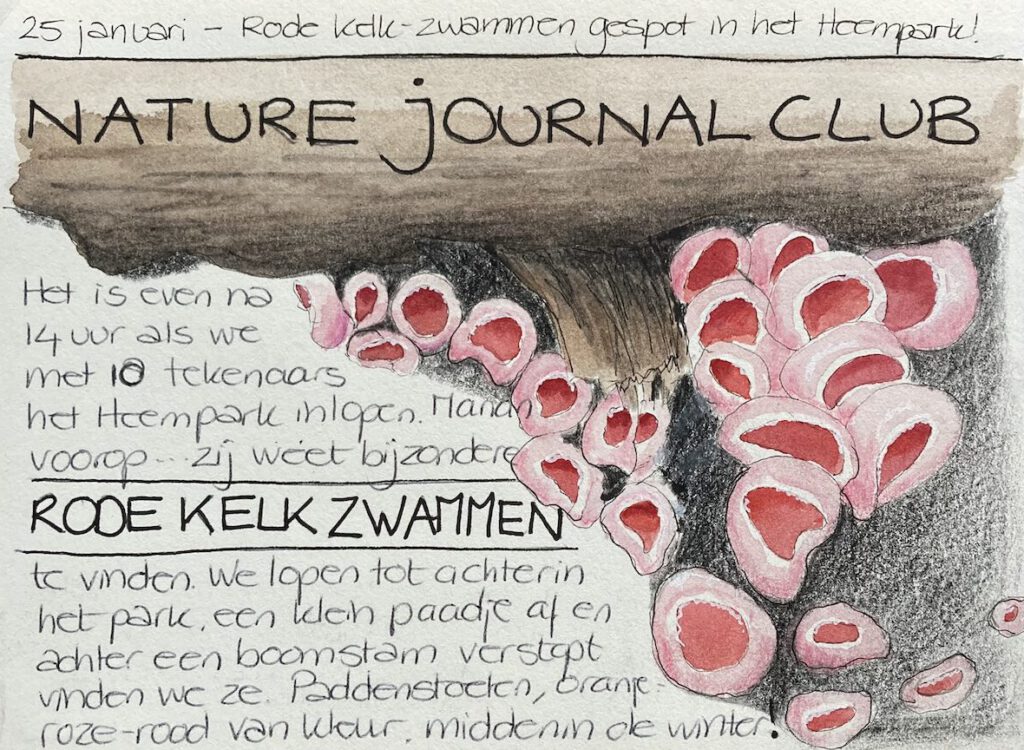 25 januari – Rode kelk-zwammen gespot in het Heempark!
NATURE JOURNAL CLUB
Het is even na
14 uur als we
met 10 tekenaars
het Heempark inlopen. Marian
voorop... zij weet bijzondere
RODE KELK ZWAMMEN
te vinden. We lopen tot achterin
het park, een klein paadje af en
achter een boomstam verstopt
vinden we ze. Paddenstoelen, oranje-
roze-rood van kleur, midden in de winter!